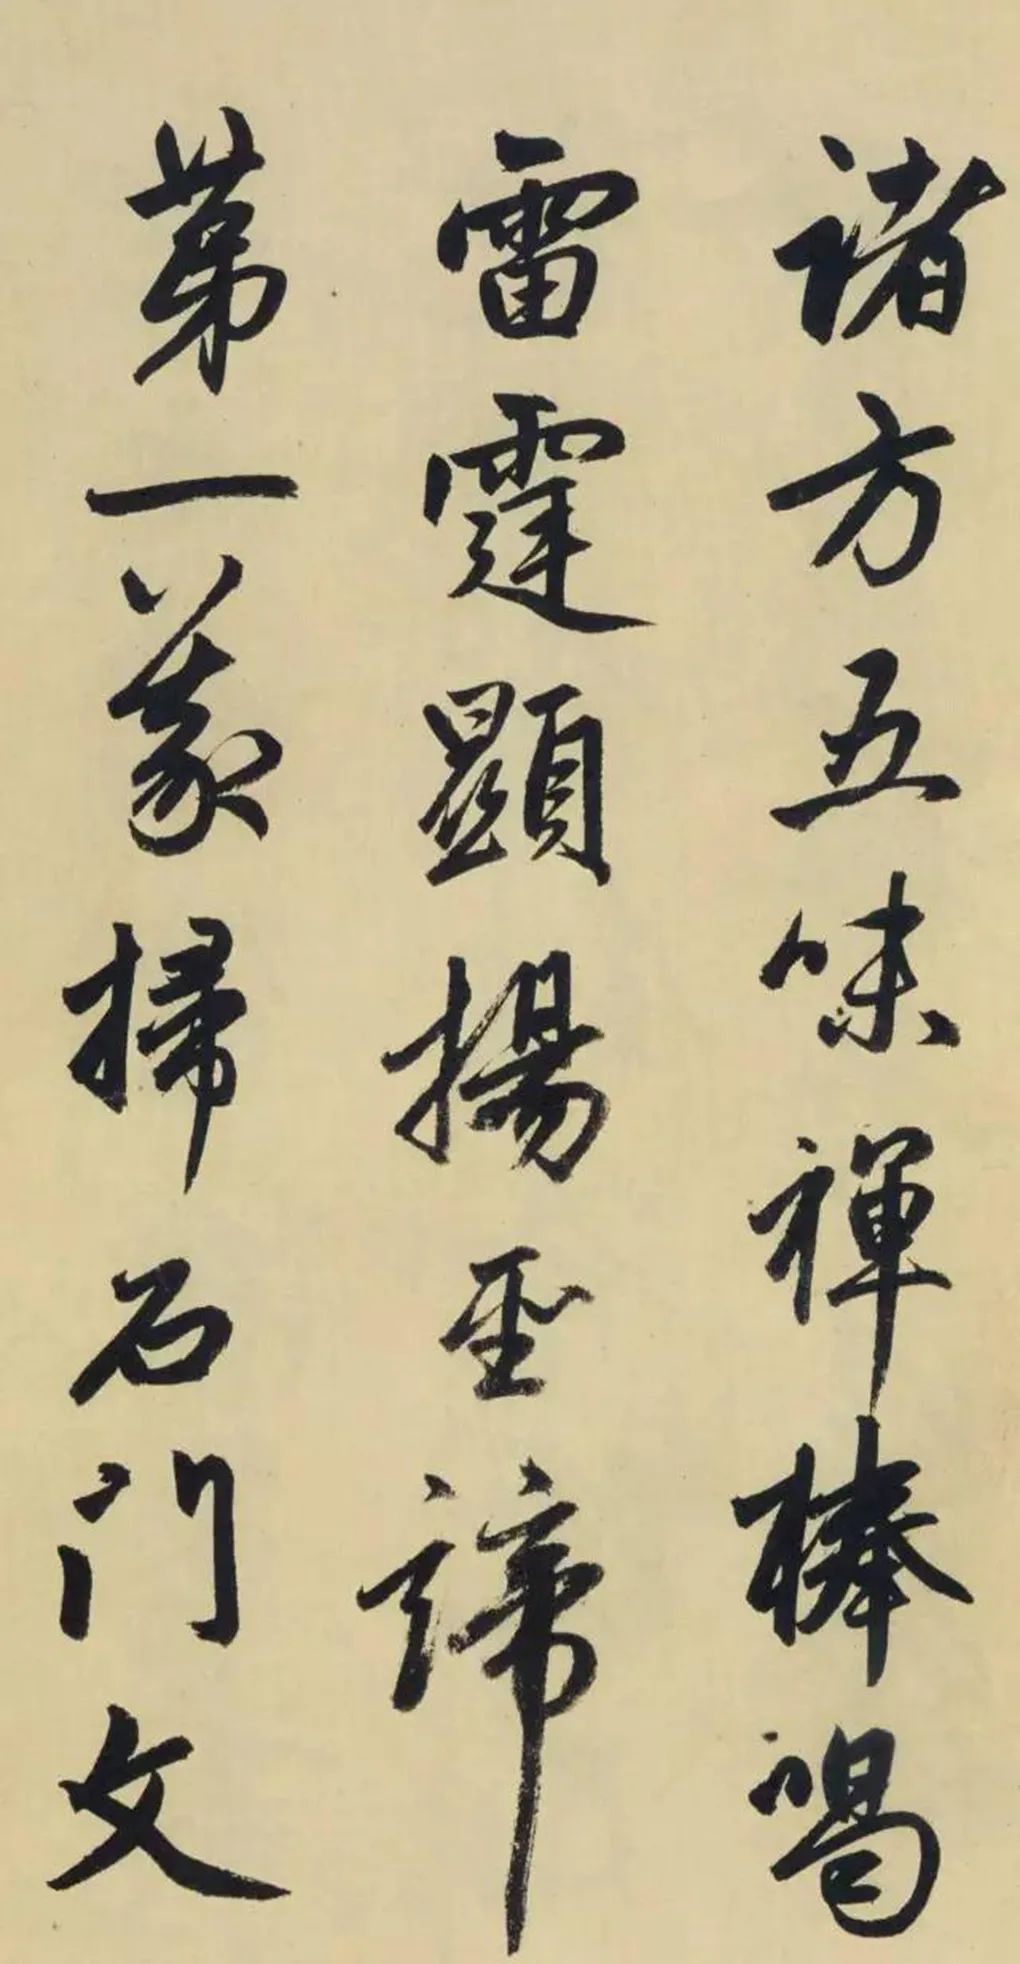 諸方五味禅棒喝
雷霆顯揚聖諦
第一義掃石門文